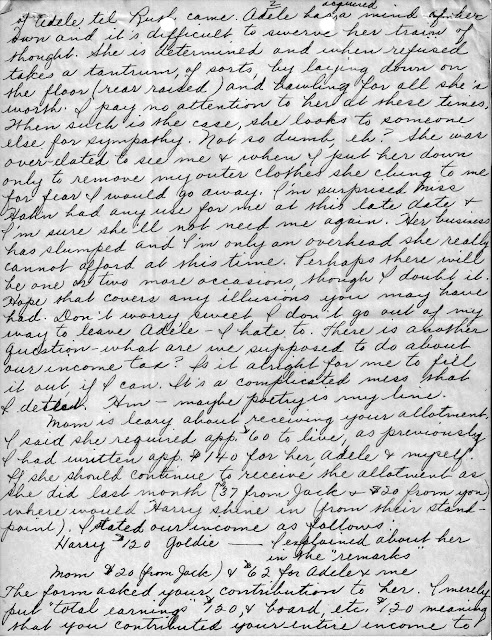 of Adele, til Ruth came. Adele has acquired a mind of her
own and it's difficult to swerve her train of
thought. She is determined and when refused
takes a tantrum, of sorts, by laying down on
the floor (rear raised) and bawling for all she's
worth. I pay no attention to her at these times.
When such is the case, she looks to someone
else for sympathy. Not so dumb, eh? She was
over-elated to see me & when I put her down
only to remove my outer clothes she clung to me
for fear I would go away. I'm surprised Miss
Hahn had any use for me at this late date &
I'm sure she'll not need me again. Her business
has slumped and I'm only an overhead she really
cannot afford at this time. Perhaps there will
be one or two more occasions, though I doubt it.
Hope that covers any illusions you may have
had. Don't worry, sweet, I don't go out of my
way to leave Adele - I hate to. There is another
question - what are we supposed to do about
our income tax? Is it alright for me to fill
it out if I can. It's a complicated mess that
I detest. Hm - maybe poetry is my line.
Mom is leary about receiving your allotment.
I said she required app. $60 to live, as previously
I had written app. $140 for her, Adele & myself.
If she should continue to receive the allotment as
she did last month ($37 from Jack & $20 from you)
where would Harry shine in (from their stand-
point). I stated our income as follows:
Harry $120 Goldie — I explained about her
in the "remarks"
Mom $20 (from Jack) & $62 for Adele & me
The form asked your contribution to her. I merely
put "total earnings" $120 & board, etc. $120 meaning
that you contributed your entire income to